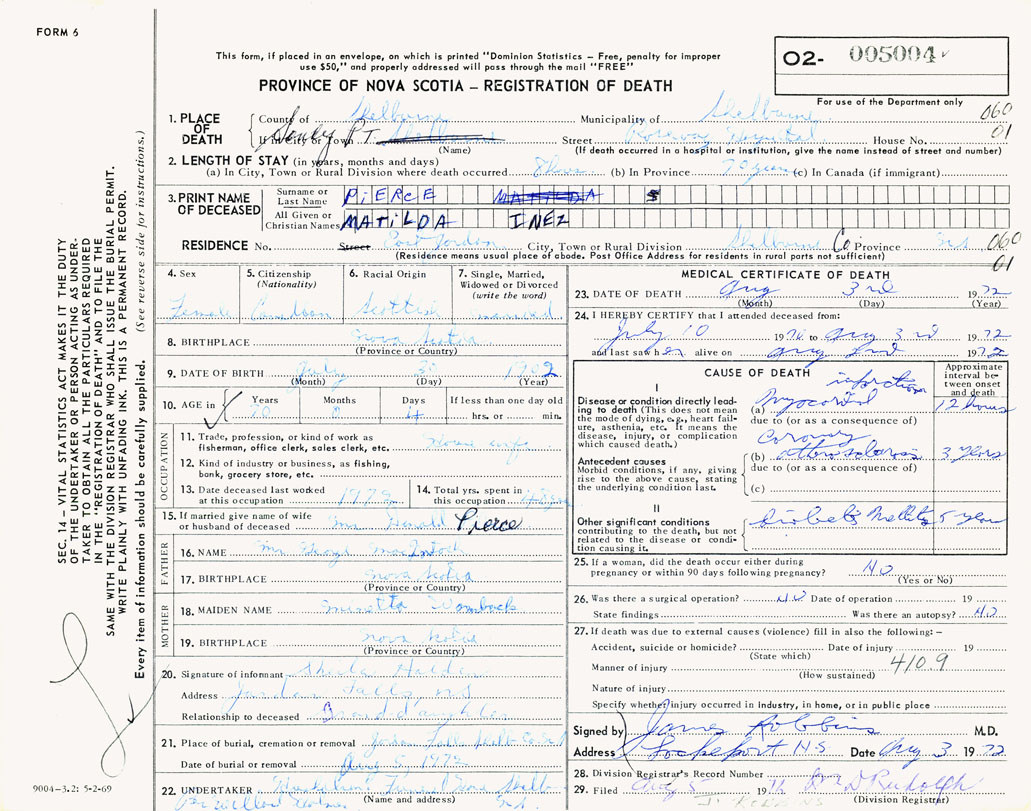 FORM 6
This form, if placed in an envelope, on which is printed "Dominion Statistics – Free, penalty for improper
use $50," and properly addressed will pass through the mail "FREE"
O2- 005004
For use of the Department only
PROVINCE OF NOVA SCOTIA – REGISTRATION OF DEATH
060
01
1. PLACE OF DEATH
County of Shelburne Municipality of Shelburne
If in City or Town Shelburne (Name) Street Roseway Hospital House No.
(If death occurred in a hospital or institution, give the name instead of street and number)
2. LENGTH OF STAY (in years, months and days)
(a) In City, Town or Rural Division where death occurred (b) In Province 70 years (c) In Canada (if immigrant)
3. PRINT NAME OF DECEASED
Surname or Last Name PIERCE MATILDA
All Given or Christian Names MATILDA INEZ
RESIDENCE No. Street City, Town or Rural Division Shelburne Co Province N.S.
(Residence means usual place of abode. Post Office Address for residents in rural parts not sufficient)
060
01
4. Sex Female
5. Citizenship (Nationality) Canadian
6. Racial Origin Scottish
7. Single, Married, Widowed or Divorced (write the word) married
8. BIRTHPLACE Nova Scotia
(Province or Country)
9. DATE OF BIRTH July 30 1902
(Month) (Day) (Year)
10. AGE in Years 70 Months 0 Days 4 If less than one day old
hrs. or min.
OCCUPATION
11. Trade, profession, or kind of work as fisherman, office clerk, sales clerk, etc. House wife
12. Kind of industry or business, as fishing, bank, grocery store, etc.
13. Date deceased last worked at this occupation 1972
14. Total yrs. spent in this occupation
15. If married give name of wife or husband of deceased Mr. Donald Pierce
FATHER
16. NAME Mr. George MacIntosh
17. BIRTHPLACE Nova Scotia
(Province or Country)
MOTHER
18. MAIDEN NAME
19. BIRTHPLACE Nova Scotia
(Province or Country)
20. Signature of informant Sheila
Address Jordan Falls, N.S.
Relationship to deceased Granddaughter
21. Place of burial, cremation or removal Jordan Falls Shelb. Co.
Date of burial or removal Aug 5, 1972
22. UNDERTAKER Funeral Home
(Name and address)
MEDICAL CERTIFICATE OF DEATH
23. DATE OF DEATH Aug 3rd 1972
(Month) (Day) (Year)
24. I HEREBY CERTIFY that I attended deceased from:
July 10 19 to Aug 3rd 1972
and last saw her alive on Aug 2nd 1972
CAUSE OF DEATH
Approximate interval between onset and death
I
Disease or condition directly leading to death (This does not mean the mode of dying, e.g., heart failure, asthenia, etc. It means the disease, injury, or complication which caused death.)
(a) Myocardial infarction 12 hours
due to (or as a consequence of)
Antecedent causes
Morbid conditions, if any, giving rise to the above cause, stating the underlying condition last.
(b) Coronary atherosclerosis 3 years
due to (or as a consequence of)
(c)
II
Other significant conditions contributing to the death, but not related to the disease or condition causing it.
Diabetes Mellitus 5 years
25. If a woman, did the death occur either during pregnancy or within 90 days following pregnancy? NO
(Yes or No)
26. Was there a surgical operation? NO Date of operation 19
State findings Was there an autopsy? NO
27. If death was due to external causes (violence) fill in also the following: –
Accident, suicide or homicide? Date of injury 19
(State which)
Manner of injury 410.9
(How sustained)
Nature of injury
Specify whether injury occurred in industry, in home, or in public place
Signed by James Robbins M.D.
Address Lockeport N.S. Date Aug 3 1972
28. Division Registrar's Record Number
29. Filed Aug 5 19 D Rudolph
(Division Registrar)
J. ROBBINS
SEC. 14 – VITAL STATISTICS ACT MAKES IT THE DUTY
OF THE UNDERTAKER OR PERSON ACTING AS UNDERTAKER
TO OBTAIN ALL THE PARTICULARS REQUIRED
IN THE "REGISTRATION OF DEATH" AND TO FILE THE
SAME WITH THE DIVISION REGISTRAR WHO SHALL ISSUE THE BURIAL PERMIT.
WRITE PLAINLY WITH UNFADING INK. THIS IS A PERMANENT RECORD.
Every item of information should be carefully supplied. (See reverse side for instructions.)
9004–3.2: 5-2-69